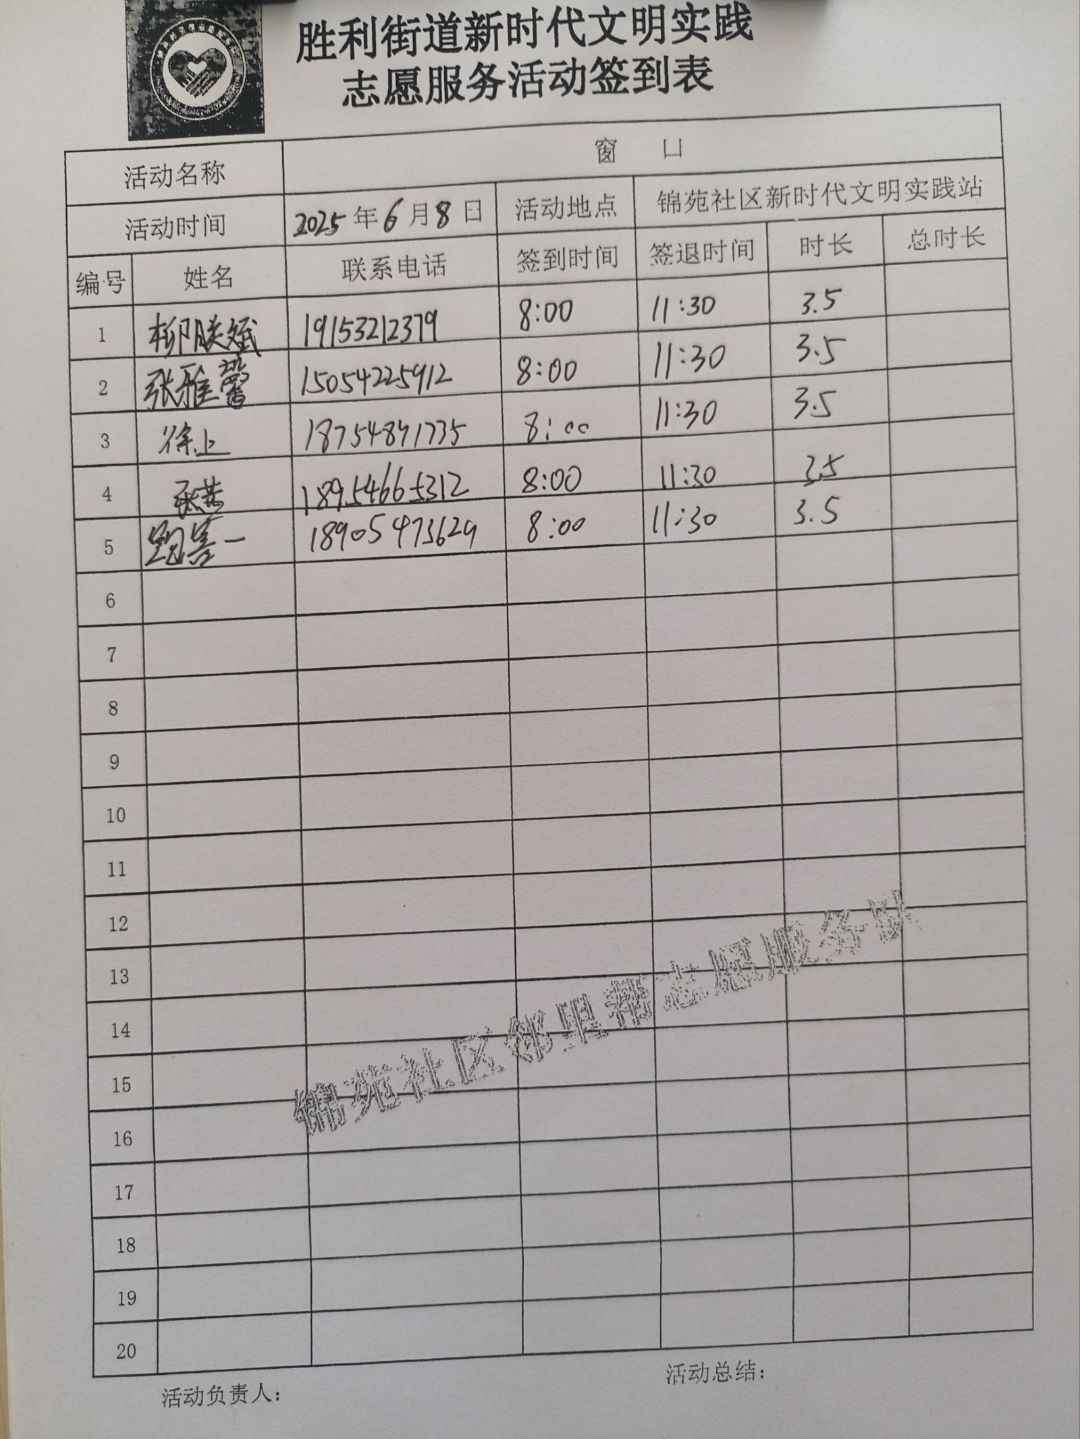 胜利街道新时代文明实践
志愿服务活动签到表
活动名称 窗 口
活动时间 2025年6月8日 活动地点 锦苑社区新时代文明实践站
编号 姓名 联系电话 签到时间 签退时间 时长 总时长
1 19153212379 8:00 11:30 3.5
2 张雅馨 15054225912 8:00 11:30 3.5
3 徐上 18754871735 8:00 11:30 3.5
4 18954665312 8:00 11:30 3.5
5 18905473629 8:00 11:30 3.5
6
7
8
9
10
11
12
13
14
15
16
17
18
19
20
锦苑社区邻里帮志愿服务队
活动负责人： 活动总结：